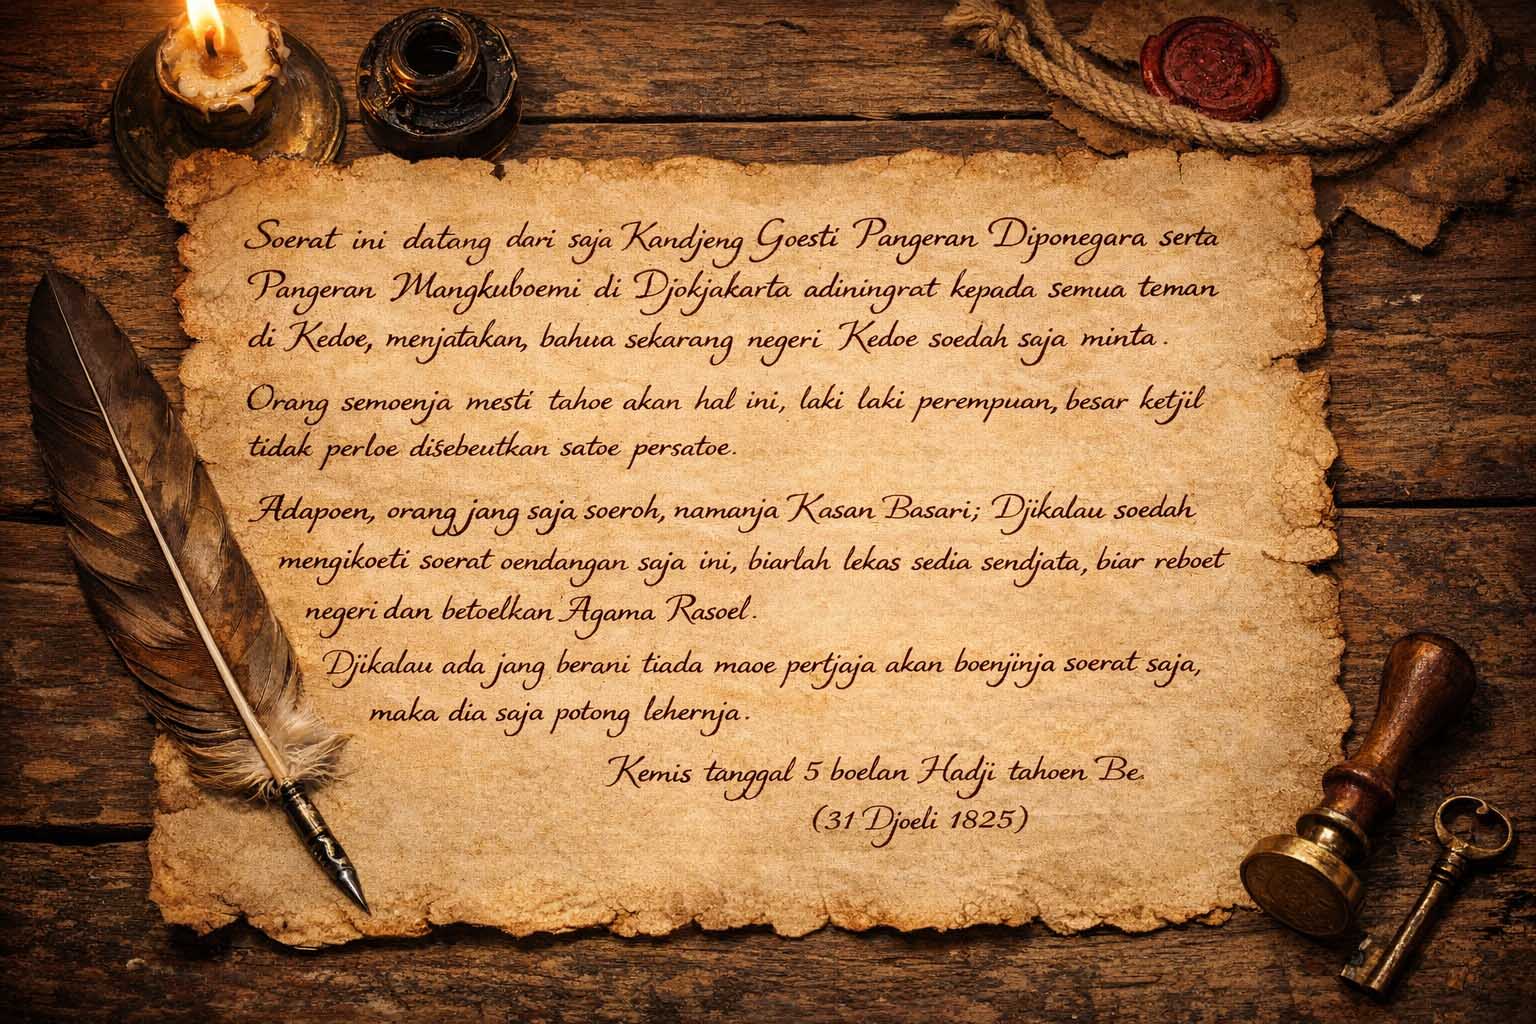 Soerat ini datang dari saja Kandjeng Goesti Pangeran Diponegara serta
Pangeran Mangkuboemi di Djokjakarta adiningrat kepada semua teman
di Kedoe, menjatakan, bahua sekarang negeri Kedoe soedah saja minta.
Orang semoenja mesti tahoe akan hal ini, laki laki perempuan, besar ketjil
tidak perloe disebeutkan satoe persatoe.
Adapoen, orang jang saja soeroh, namanja Kasan Basari; Djikalau soedah
mengikoeti soerat oendangan saja ini, biarlah lekas sedia sendjata, biar reboet
negeri dan betoelkan Agama Rasoel.
Djikalau ada jang berani tiada maoe pertjaja akan boenjinja soerat saja,
maka dia saja potong lehernja.
Kemis tanggal 5 boelan Hadji tahoen Be.
(31 Djoeli 1825)